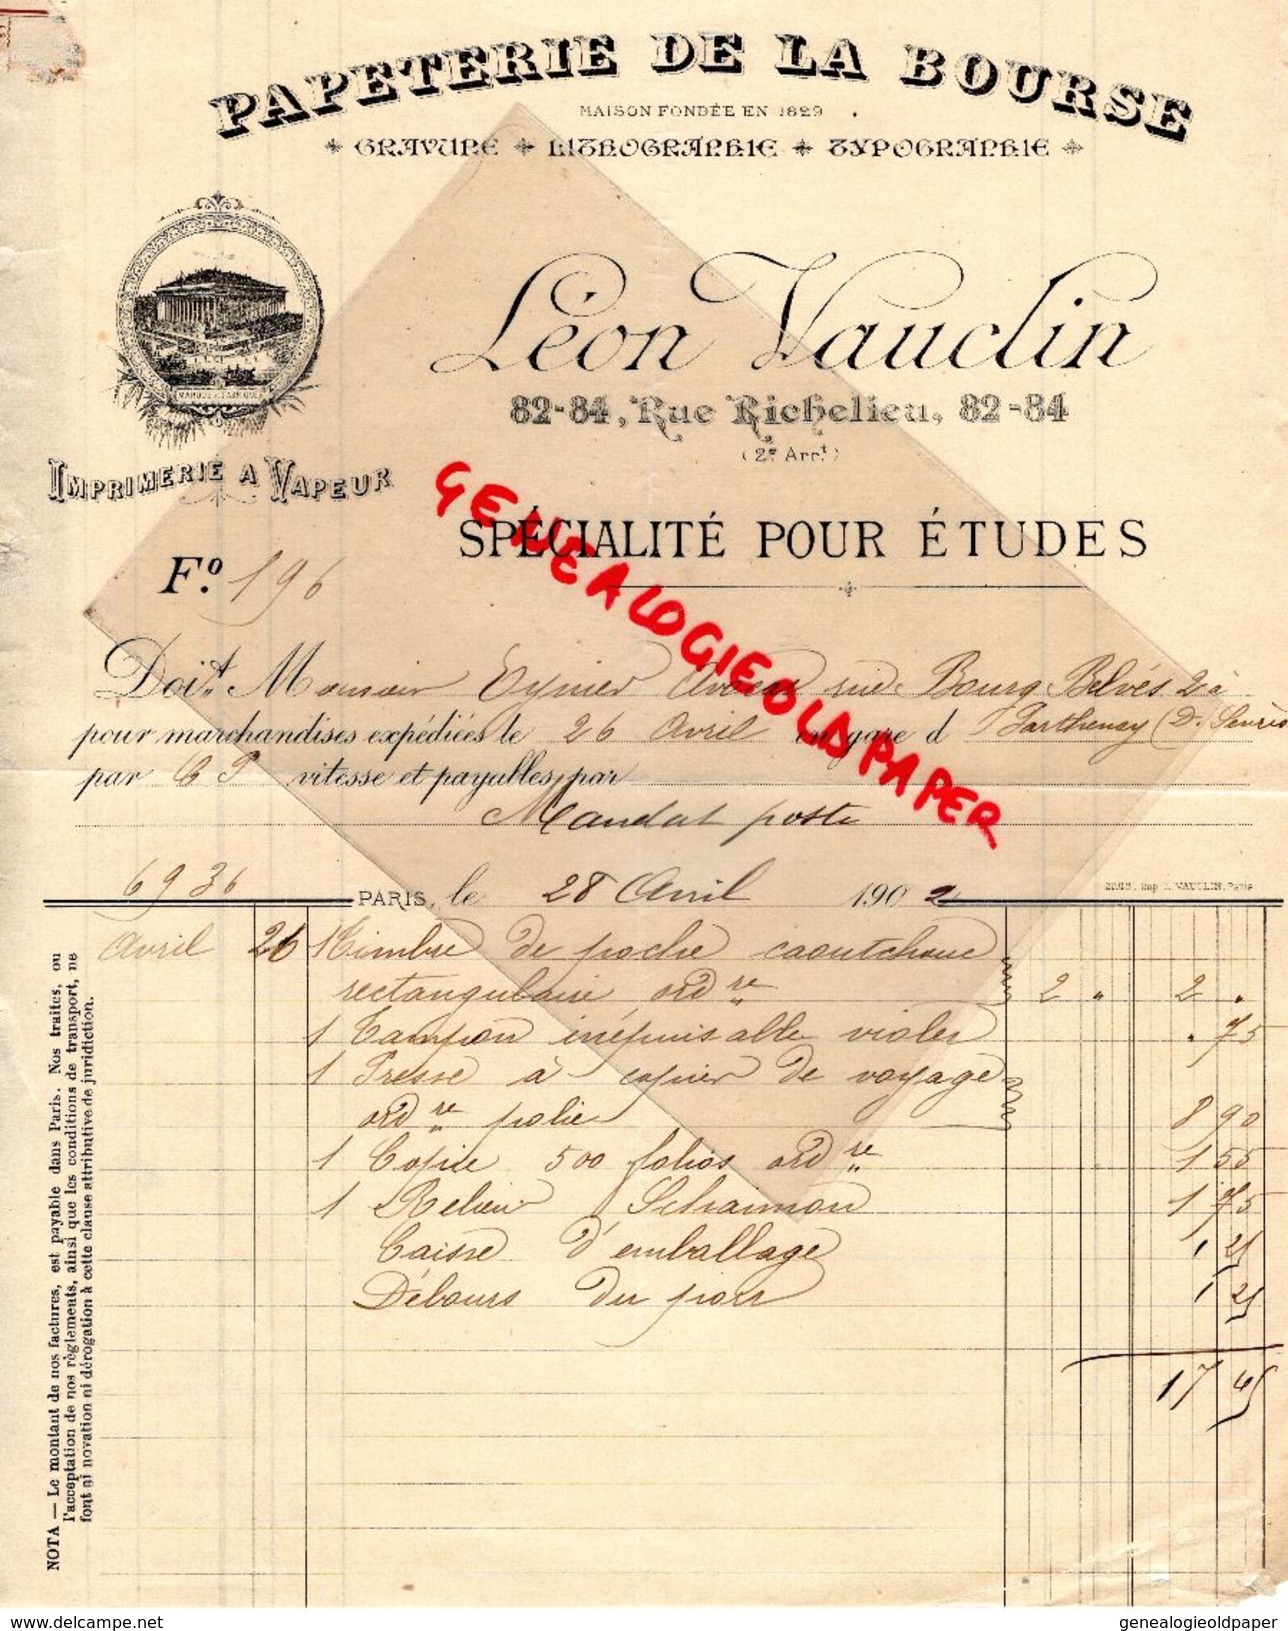 PAPETERIE DE LA BOURSE
MAISON FONDÉE EN 1829
GRAVURE LITHOGRAPHIE TYPOGRAPHIE
Léon Vauclin
82-84, Rue Richelieu, 82-84
(2e Arrt)
MARQUE DE FABRIQUE
IMPRIMERIE A VAPEUR
SPÉCIALITÉ POUR ÉTUDES
GENEALOGIEOLDPAPER
Fo. 196
Doit Monsieur Eymer rue Bourg Belvés 2 à
pour marchandises expédiées le 26 Avril en gare d Parthenay (D. Sèvres
par C P vitesse et payables par
Mandat poste
6936
PARIS, le 28 Avril 1902
Imp. L. VAUCLIN, Paris
Avril 26 1 Timbre de poche caoutchouc
rectangulaire ordre 2 " 2 "
1 Tampon inépuisable violet " 75
1 Presse à copier de voyage
ordre polie 8 90
1 Copie 500 folios ordre 1 55
1 Relieur 1 75
Caisse d'emballage 1 25
Débours du port 1 25
17 45
NOTA — Le montant de nos factures, est payable dans Paris. Nos traites, ou
l'acceptation de nos règlements, ainsi que les conditions de transport, ne
font ni novation ni dérogation à cette clause attributive de juridiction.
www.delcampe.net
genealogieoldpaper